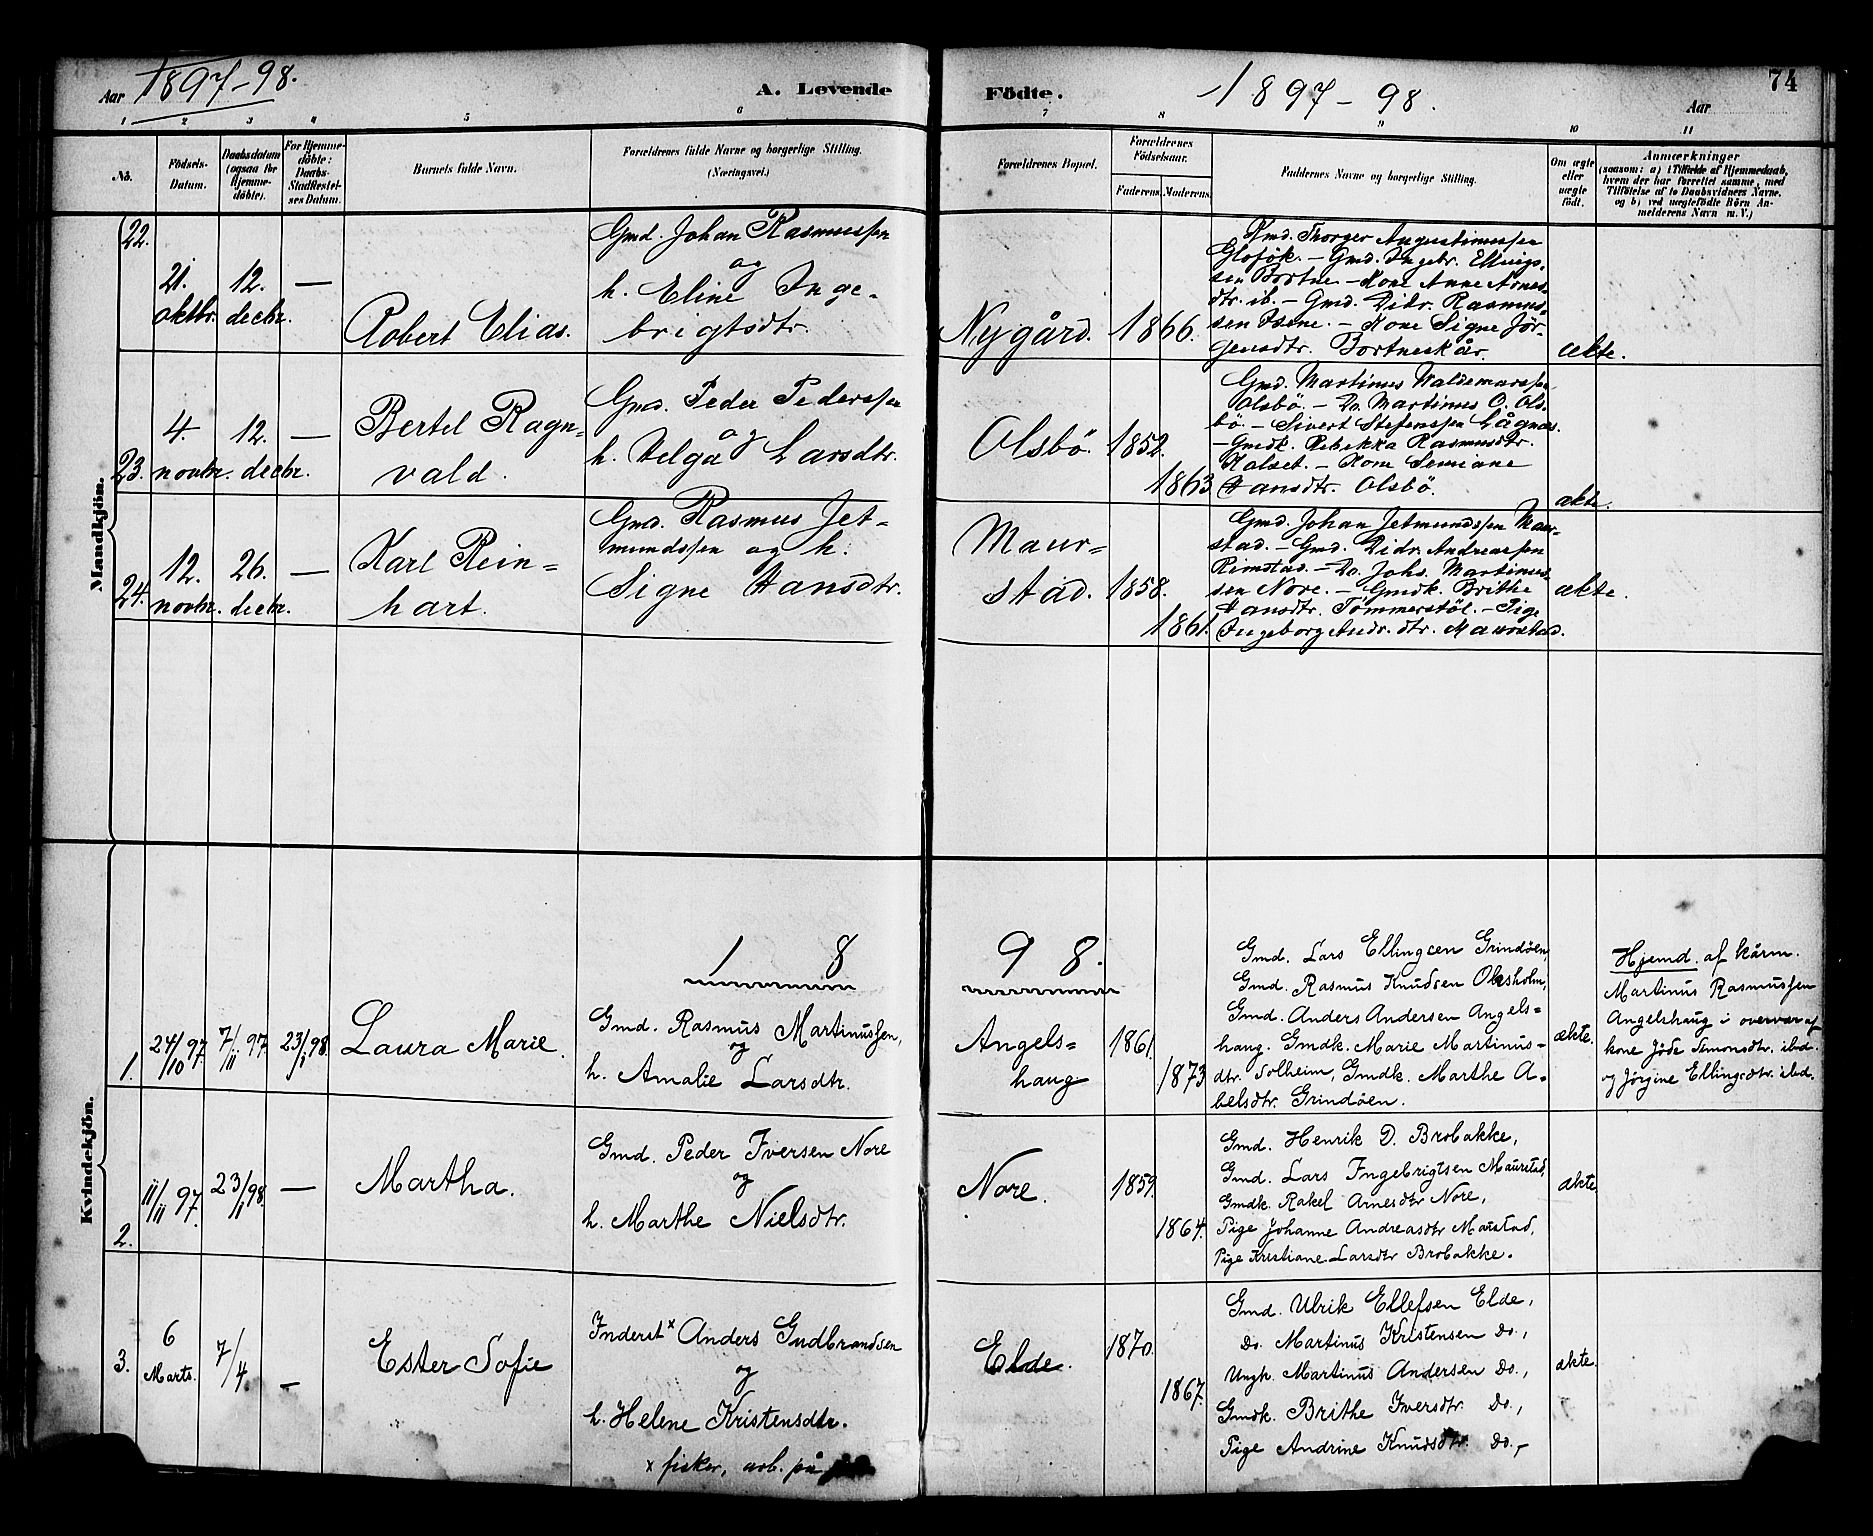 Aar 1897-98.
A. Levende
Födte.
1897-98.
Aar
74
1 2 3 4 5 6 7 8 9 10 11
No.
Födsels-Datum.
Daabsdatum (ogsaa for Hjemmedöbte).
For Hjemmedöbte: Daabs-Stadfæstelses Datum.
Barnets fulde Navn.
Forældrenes fulde Navne og borgerlige Stilling.
(Næringsvei.)
Forældrenes Bopæl.
Forældrenes Födselsaar.
Faderens. Moderens.
Faddernes Navne og borgerlige Stilling.
Om ægte eller uægte födt.
Anmærkninger
(saasom: a) i Tilfælde af Hjemmedaab,
hvem der har forrettet samme, med
Tilföielse af to Daabsvidners Navne.
og b) ved uægtefödte Börn An-
melderens Navn m. V.)
Mandkjön.
22.
21. oktbr.
12. decbr.
—
Robert Elias.
Gmd. Johan Rasmussen
og
h. Eline Inge-
brigtsdtr.
Nygård.
1866.
Kmd. Thorger Augustinussen
Glofök. - Gmd. Ingebr. Ellings-
sen Bortne - Kone Anne Arnes-
dtr. ib. - Gmd. Didr. Rasmus-
sen Isene. - Kone Signe Jör-
gensdtr. Bortneskår.
ækte.
23.
4. novbr.
12. decbr.
—
Bertel Ragn-
vald.
Gmd. Peder Pedersen
og
h. Helga Larsdtr.
Olsbö.
1852.
1863
Gmd. Martinus Waldemarssen
Olsbö. - Do. Martinus O. Ols-
bö. - Sivert Stefenssen Lågnes.
- Gmdk. Rebekka Rasmusdtr.
Kalset. - Kone Semiane
Hansdtr. Olsbö.
ækte.
24.
12. novbr.
26. decbr.
—
Karl Rein-
hart.
Gmd. Rasmus Jet-
mundssen og h.
Signe Hansdtr.
Maur-
stad.
1858.
1861.
Gmd. Johan Jetmundssen Maur-
stad. - Gmd. Didr. Andreassen
Rimstad. - Do. Johs. Martinus-
sen Nore. - Gmdk. Brithe
Hansdtr. Tömmerstöl. - Pige
Ingeborg Andr. dtr. Maurstad.
ækte.
Kvindekjön.
1 8 9 8.
1.
24/10 97.
7/11 97
23/1 98.
Laura Marie.
Gmd. Rasmus Martinussen,
og
h. Amalie Larsdtr.
Angels-
haug
1861.
1873
Gmd. Lars Ellingsen Grindöen,
Gmd. Rasmus Knudsen Olesholm,
Gmd. Anders Andersen Angels-
haug. Gmdk. Marie Martinus-
dtr. Solheim, Gmdk. Marthe A-
belsdtr. Grindöen.
ækte.
Hjemd. af kårm.
Martinus Rasmussen
Angelshaug i overvær af
kone Jöde Simonsdtr. ibid.
og Jørgine Ellingsdtr. ibid.
2.
11/11 97.
23/1 98.
—
Martha.
Gmd. Peder Iversen Nore
og
h. Marthe Nielsdtr.
Nore.
1859.
1864.
Gmd. Henrik D. Brobakke,
Gmd. Lars Ingebrigtsen Maurstad,
Gmdk. Rakel Arnesdtr Nore,
Pige Johanne Andreasdtr Maurstad,
Pige Kristiane Larsdtr Brobakke.
ækte
3.
6 Marts.
7/4
—
Ester Sofie
Inderst x Anders Gudbrandsen
og
h. Helene Kristensdtr.
x fisker, arb. på
Elde.
1870.
1867.
Gmd. Ulrik Ellefsen Elde,
Do. Martinus Kristensen Do.,
Ungk. Martinus Andersen Do.,
Gmdk. Brithe Iversdtr. Do.,
Pige Andrine Knudsdtr. Do.,
ækte.